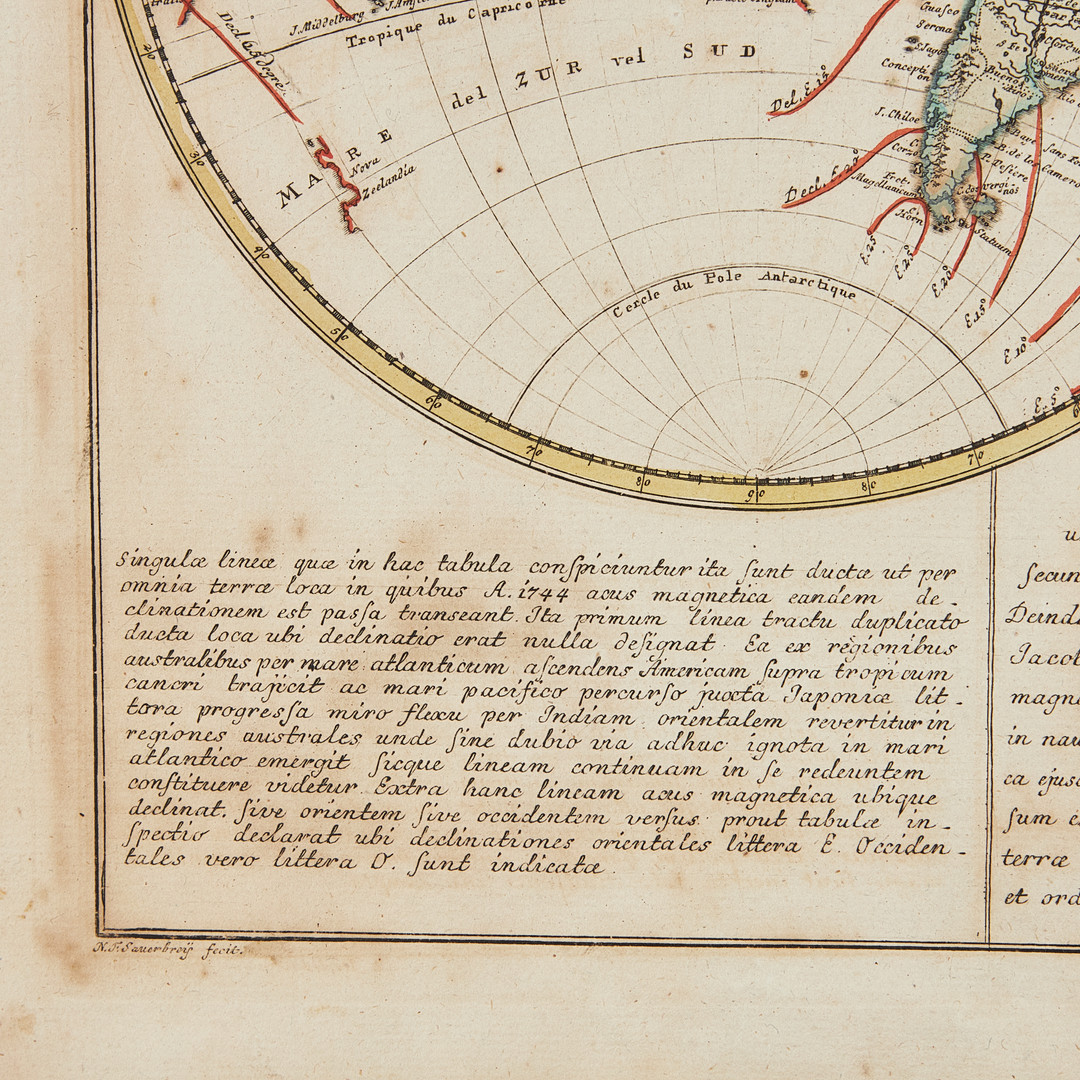 Decl. 6½ degré.
J. Middelburg
Tropique du Capricorne
MARE del ZUR vel SUD
Nova
Zeelandia
Del. E. 15°
Decl. E. 20°
Guasco
Serena
S. Jago
Concepti
on
Buenos
J. Chiloe
Fret.
Magellanicum
Horn
Statuum
E. 25°
E. 25°
E. 20°
E. 15°
E. 10°
E. 5°
Cercle du Pole Antarctique
20
30
40
50
60
70
80
90
80
70
Singulæ lineæ quæ in hac tabula conſpiciuntur ita ſunt ductæ ut per
omnia terræ loca in quibus A. 1744 acus magnetica eandem de-
clinationem est paſſa transeant. Ita primum linea tractu duplicato
ducta loca ubi declinatio erat nulla deſignat. Ea ex regionibus
australibus per mare atlanticum aſcendens Americam ſupra tropicum
cancri trajicit ac mari pacifico percurſo juxta Japoniæ lit-
tora progreſſa miro flexu per Indiam orientalem revertitur in
regiones australes unde ſine dubio via adhuc ignota in mari
atlantico emergit ſicque lineam continuam in ſe redeuntem
conſtituere videtur. Extra hanc lineam acus magnetica ubique
declinat. ſive orientem ſive occidentem verſus prout tabulæ in-
ſpectio declarat ubi declinationes orientales littera E. Occiden-
tales vero littera O. ſunt indicatæ.
u
ſecun
Deind
Jacot
magne
in nau
ca ejusd
ſum e
terræ
et ord
N. F. Sauerbreÿ fecit.